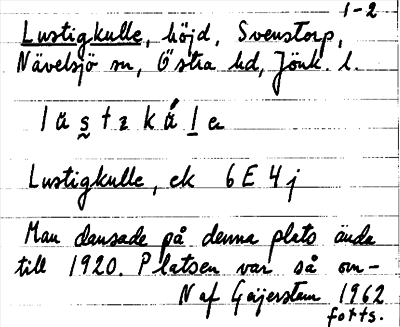 1-2
Lustigkulle, höjd, Svenstorp,
Nävelsjö sn, Östra hd, Jönk. l.
Lustigkulle, ek 6E4j
Man dansade på denna plats ända
till 1920. Platsen var så om-
N af Geijerstam 1962
forts.